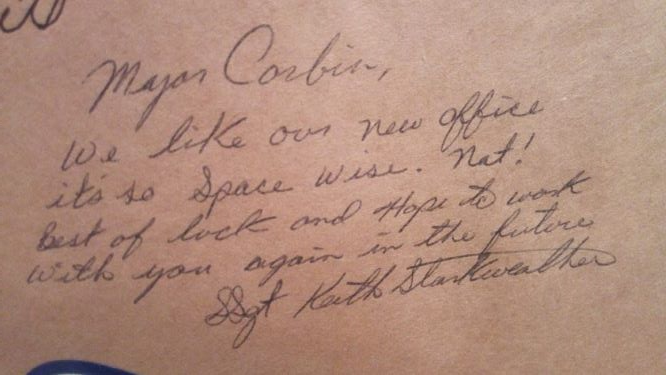 Major Corbin,
We like our new office
it's so Space wise. Nat!
Best of luck and Hope to work
with you again in the future
SSgt Keith Starkweather